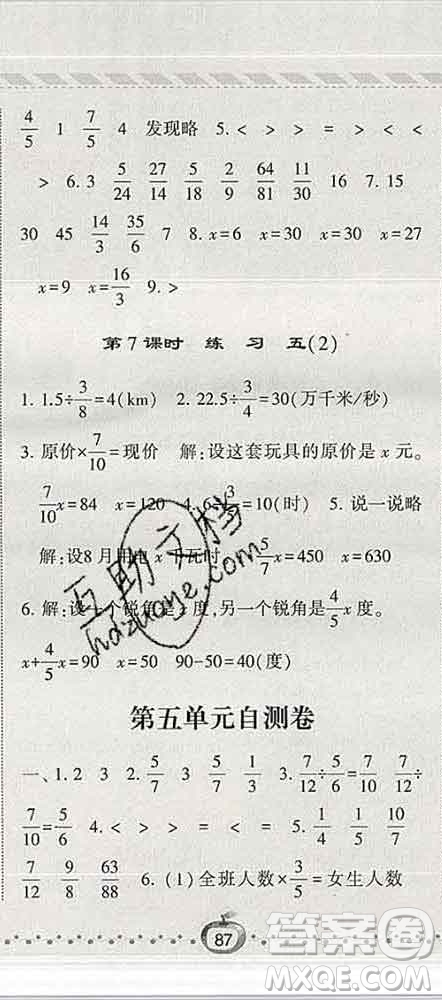 4/5 1 7/5 4 发现略 5. < > > = > < <
> 6. 3 5/24 27/14 5/18 2/9 64/81 11/30 16 7. 15
30 45 14/3 35/6 7 8. x=6 x=30 x=27
x=9 x=16/3 9. >
第7课时 练 习 五(2)
1. 1.5÷3/8=4(km) 2. 22.5÷3/4=30(万千米/秒)
3. 原价×7/10=现价 解:设这套玩具的原价是 x 元。
7/10x=84 x=120 4. 6÷3/5=10(时) 5. 说一说略
解:设8月用电 x 千瓦时 5/7x=450 x=630
6. 解:设一个锐角是 x 度,另一个锐角是4/5x度。
x+4/5x=90 x=50 90-50=40(度)
第五单元自测卷
一、1. 2 3 2. 5/7 3 5/7 1/3 3. 7/12÷5/6=7/10 7/12÷
7/10=5/6 4. < > > = < = 5. 1/4 1/5 9/10
7/12 9/8 63/88 6. (1)全班人数×3/5=女生人数
87
互助文档
hdzuoye.com
答案圈
MXQE.COM